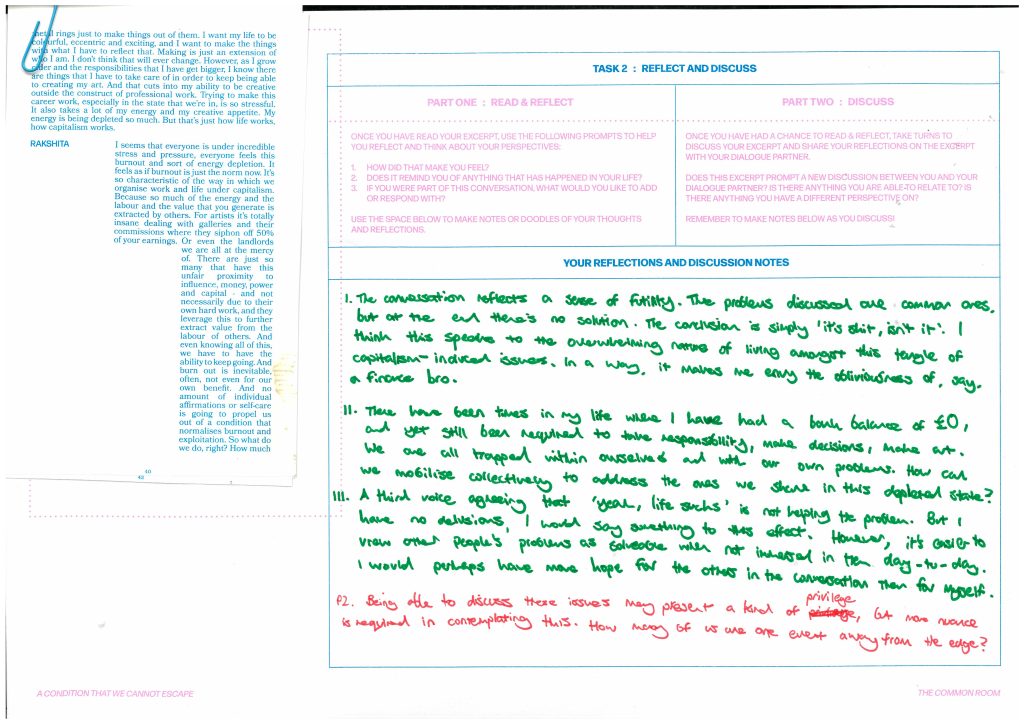 metal rings just to make things out of them. I want my life to be
colourful, eccentric and exciting, and I want to make the things
with what I have to reflect that. Making is just an extension of
who I am. I don't think that will ever change. However, as I grow
older and the responsibilities that I have get bigger, I know there
are things that I have to take care of in order to keep being able
to creating my art. And that cuts into my ability to be creative
outside the construct of professional work. Trying to make this
career work, especially in the state that we're in, is so stressful.
It also takes a lot of my energy and my creative appetite. My
energy is being depleted so much. But that's just how life works,
how capitalism works.
RAKSHITA
I seems that everyone is under incredible
stress and pressure, everyone feels this
burnout and sort of energy depletion. It
feels as if burnout is just the norm now. It's
so characteristic of the way in which we
organise work and life under capitalism.
Because so much of the energy and the
labour and the value that you generate is
extracted by others. For artists it's totally
insane dealing with galleries and their
commissions where they siphon off 50%
of your earnings. Or even the landlords
we are all at the mercy
of. There are just so
many that have this
unfair proximity to
influence, money, power
and capital - and not
necessarily due to their
own hard work, and they
leverage this to further
extract value from the
labour of others. And
even knowing all of this,
we have to have the
ability to keep going. And
burn out is inevitable,
often, not even for our
own benefit. And no
amount of individual
affirmations or self-care
is going to propel us
out of a condition that
normalises burnout and
exploitation. So what do
we do, right? How much
40
42
TASK 2 : REFLECT AND DISCUSS
PART ONE : READ & REFLECT
ONCE YOU HAVE READ YOUR EXCERPT, USE THE FOLLOWING PROMPTS TO HELP
YOU REFLECT AND THINK ABOUT YOUR PERSPECTIVES:
1. HOW DID THAT MAKE YOU FEEL?
2. DOES IT REMIND YOU OF ANYTHING THAT HAS HAPPENED IN YOUR LIFE?
3. IF YOU WERE PART OF THIS CONVERSATION, WHAT WOULD YOU LIKE TO ADD
OR RESPOND WITH?
USE THE SPACE BELOW TO MAKE NOTES OR DOODLES OF YOUR THOUGHTS
AND REFLECTIONS.
PART TWO : DISCUSS
ONCE YOU HAVE HAD A CHANCE TO READ & REFLECT, TAKE TURNS TO
DISCUSS YOUR EXCERPT AND SHARE YOUR REFLECTIONS ON THE EXCERPT
WITH YOUR DIALOGUE PARTNER.
DOES THIS EXCERPT PROMPT A NEW DISCUSSION BETWEEN YOU AND YOUR
DIALOGUE PARTNER? IS THERE ANYTHING YOU ARE ABLE TO RELATE TO? IS
THERE ANYTHING YOU HAVE A DIFFERENT PERSPECTIVE ON?
REMEMBER TO MAKE NOTES BELOW AS YOU DISCUSS!
YOUR REFLECTIONS AND DISCUSSION NOTES
I. The conversation reflects a sense of futility. The problems discussed are common ones,
but at the end there's no solution. The conclusion is simply 'it's shit, isn't it'. I
think this speaks to the overwhelming nature of living amongst this tangle of
capitalism-induced issues. In a way, it makes me envy the obliviousness of, say,
a finance bro.
II. There have been times in my life where I have had a bank balance of £0,
and yet still been required to take responsibility, make decisions, make art.
We are all trapped within ourselves and with our own problems. How can
we mobilise collectively to address the ones we share in this depleted state?
III. A third voice agreeing that 'yeah, life sucks' is not helping the problem. But I
have no delusions, I would say something to this effect. However, it's easier to
view other people's problems as solveable when not immersed in them day-to-day.
I would perhaps have more hope for the others in the conversation than for myself.
P2. Being able to discuss these issues may present a kind of privilege, but more nuance
is required in contemplating this. How many of us are one event away from the edge?
A CONDITION THAT WE CANNOT ESCAPE
THE COMMON ROOM